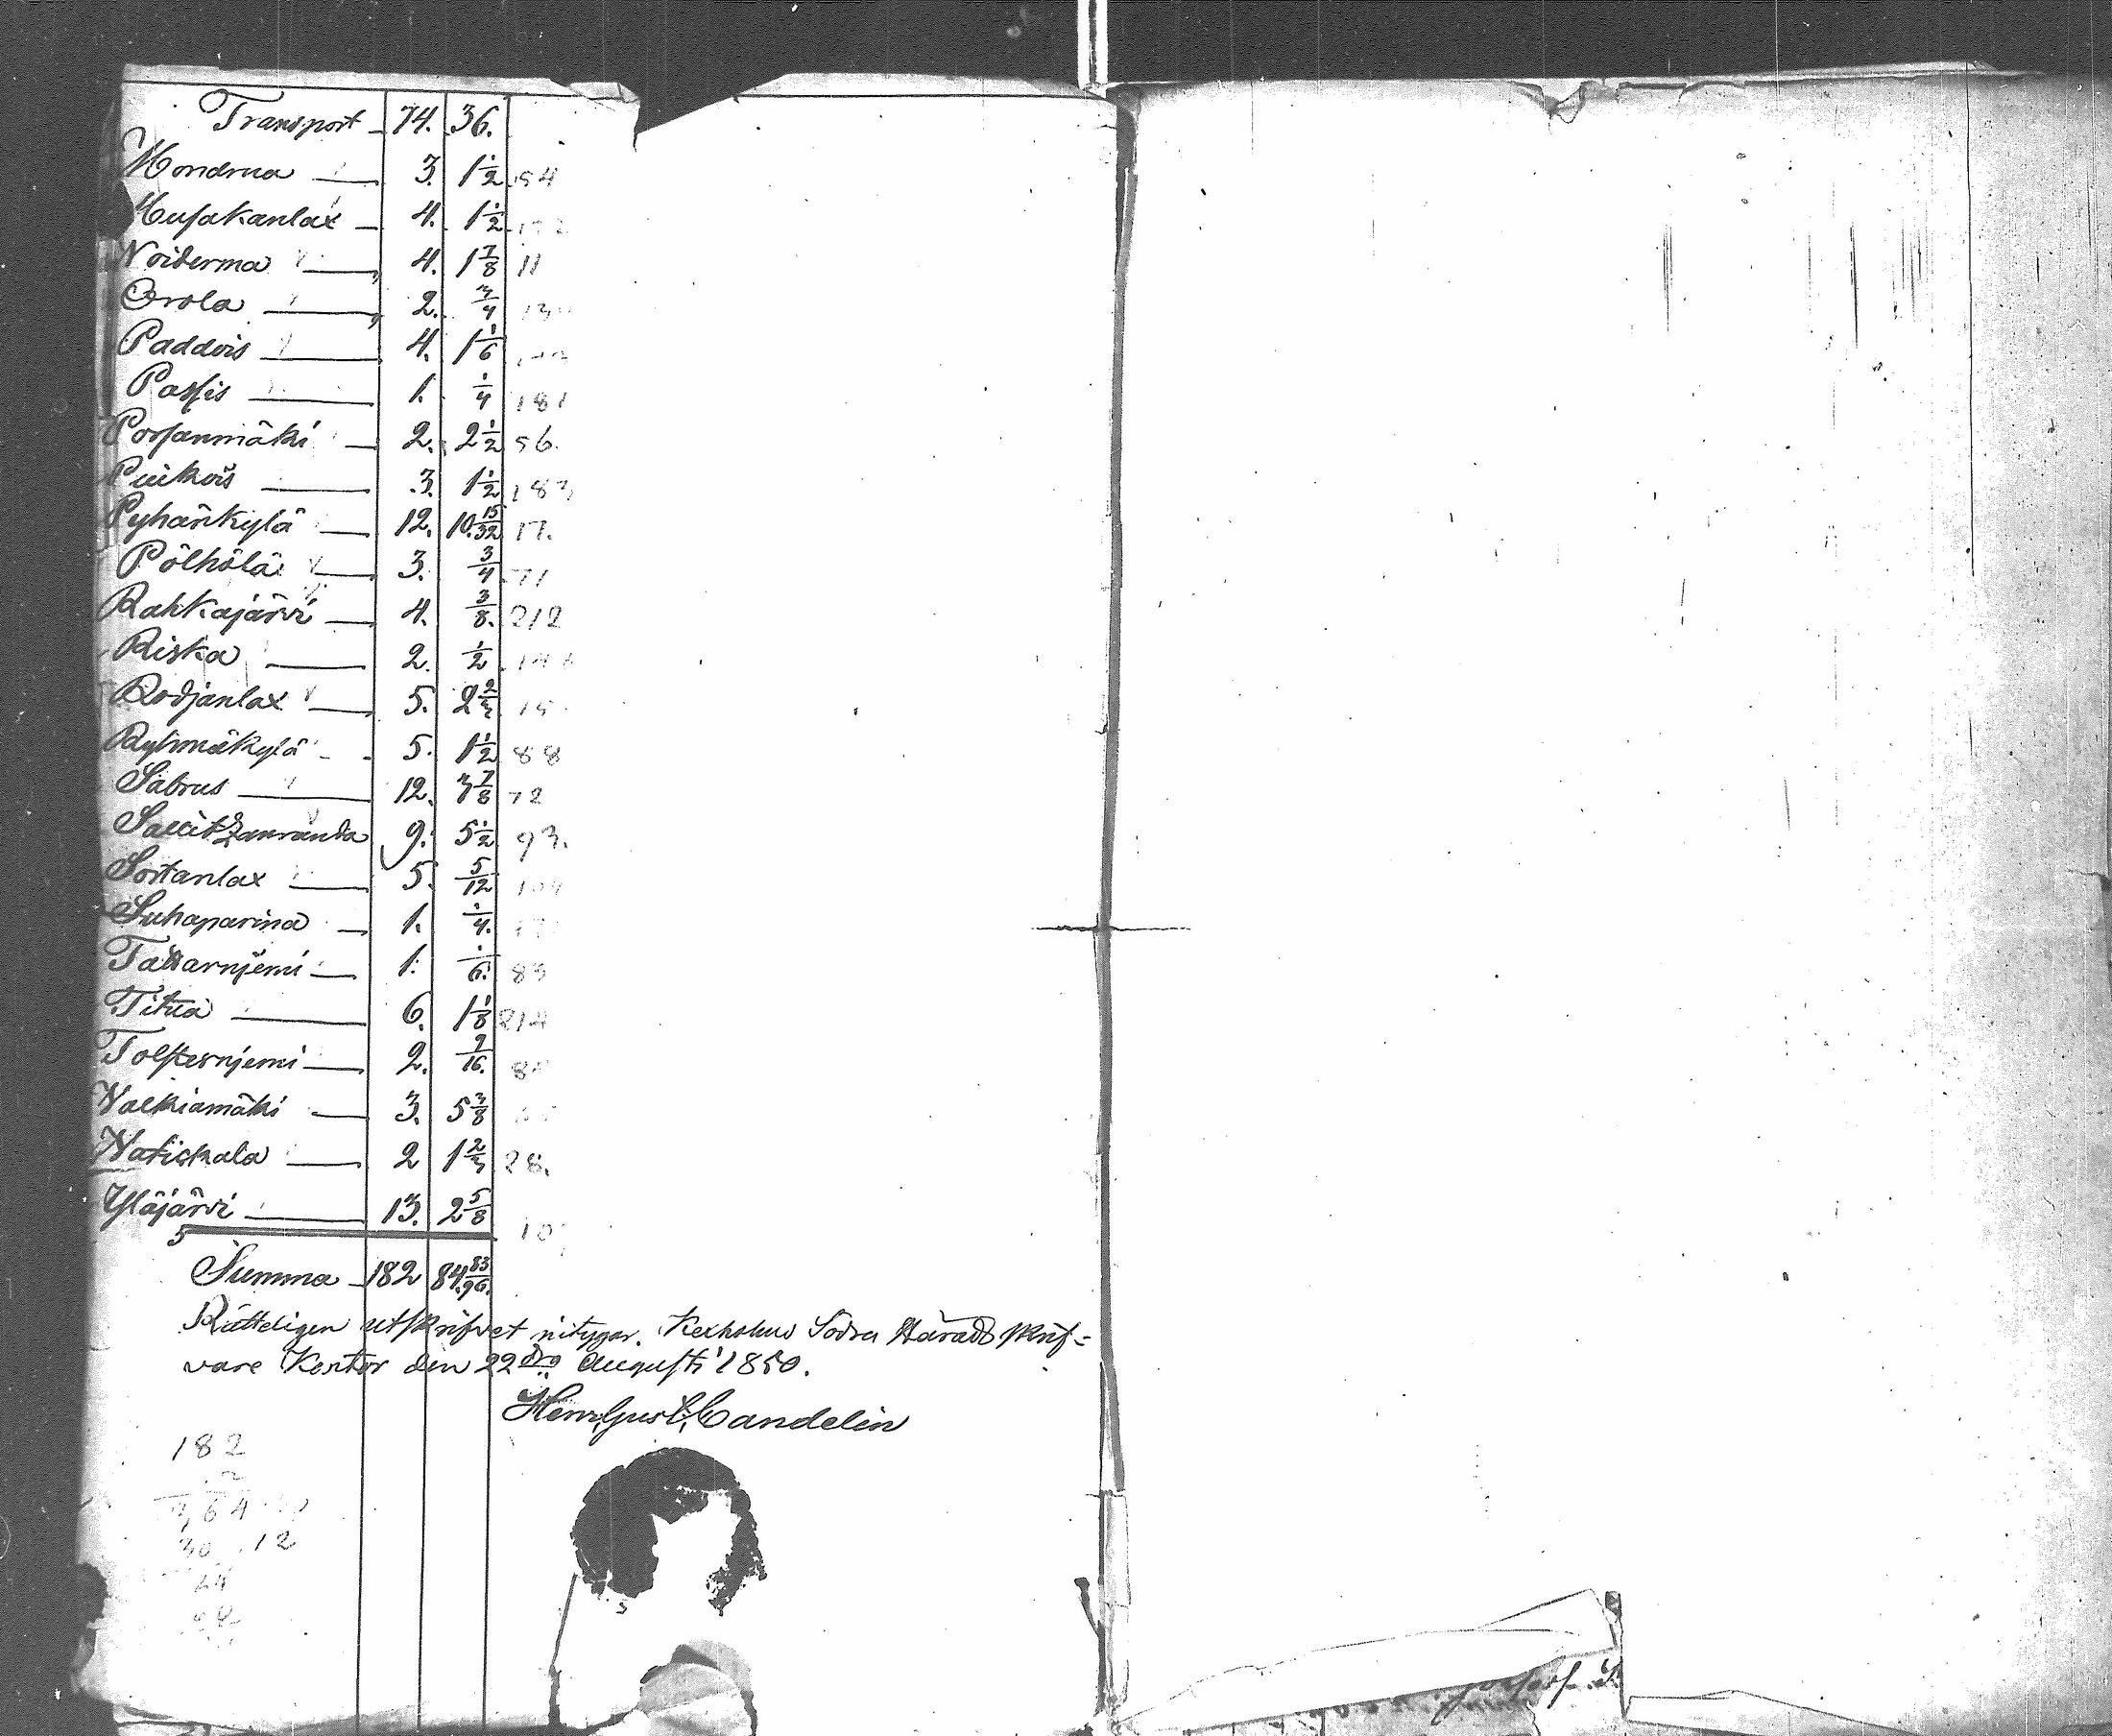 Transport 74. 36.
Mondrua 3. 1 1/2 54
Musakanlax 4. 1 1/2
Noiderma 4. 1 7/8 11
Orola 2. 3/4
Paddois 4. 1 1/6
Passis 1. 1/4 181
Porsanmäki 2. 2 1/2 56.
Puikois 3. 1 1/2 183
Pyhänkylä 12. 10. 15/32 17.
Pölhölä 3. 3/4 71
Rahkajärvi 4. 3/8. 212
Riska 2. 1/2
Rodjanlax 5. 2 2/3
Ryhmäkylä 5. 1 1/2 88
Sabrus 12. 3 7/8 72
Sallitzanranda 9. 5 1/2 93.
Sortanlax 5. 5/12
Suhaparina 1. 1/4.
Tattarnjemi 1. 1/6. 83
Titua 6. 1 1/8 214
Tolsternjemi 2. 9/16.
Walkiamäki 3. 5 3/8
Watiskala 2 1 2/3 28.
Yläjärvi 13. 2 5/8
Summa 182 84. 83/96.
Rätteligen utskrifvet intygar. Kexholms Södra Härads skrif=
vare Kontor den 22dra Augusti 1850.
Henr. Gust. Candelin
182
2
3,64
30 12
24